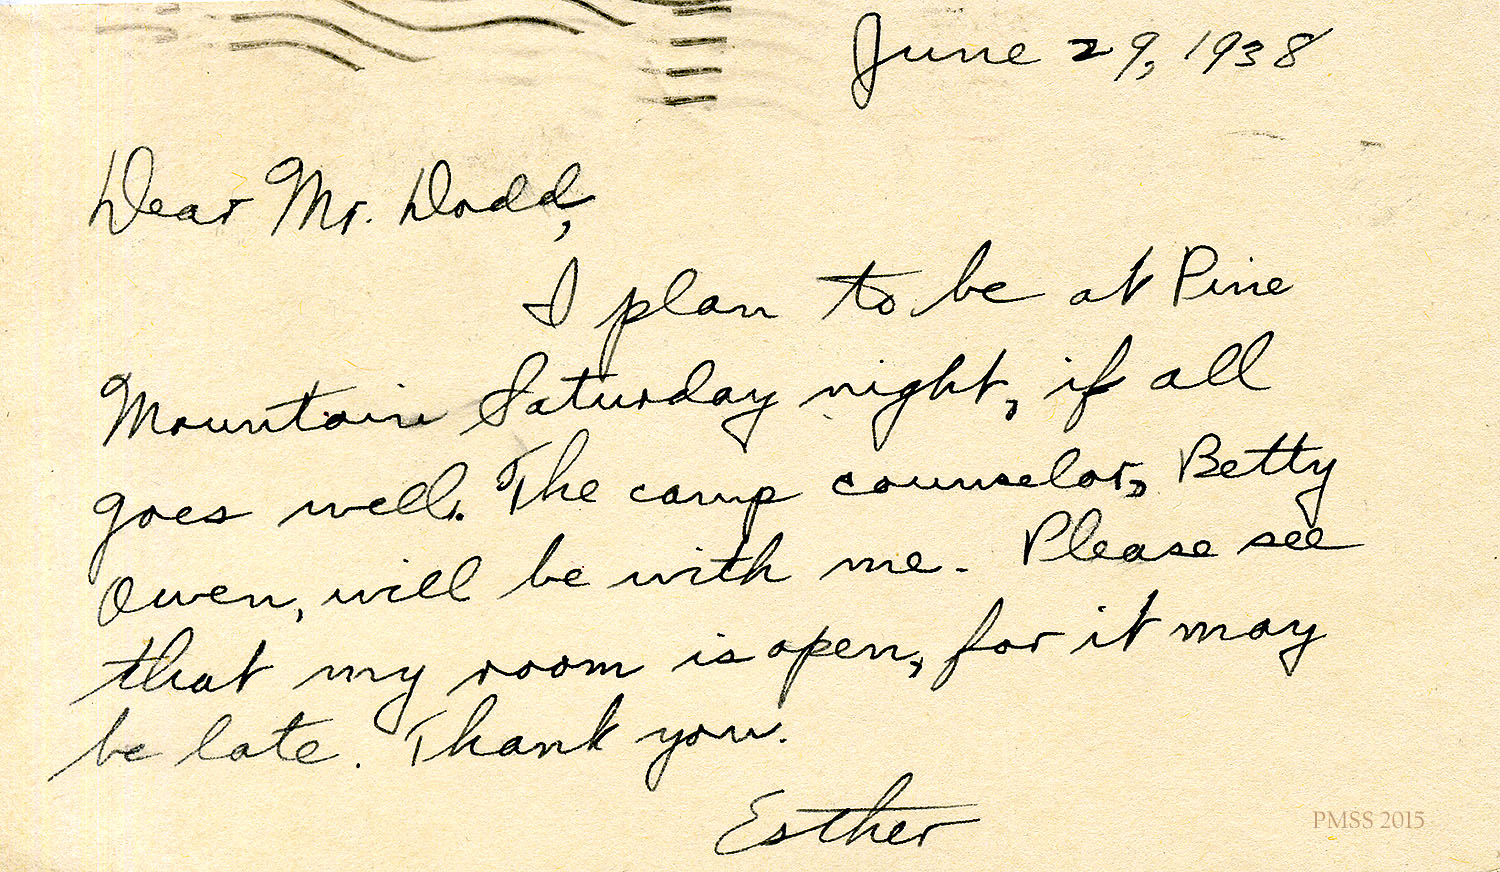 June 29, 1938
Dear Mr. Dodd,
I plan to be at Pine
Mountain Saturday night, if all
goes well. The camp counselor, Betty
Owen, will be with me. Please see
that my room is open, for it may
be late. Thank you.
Esther
PMSS 2015